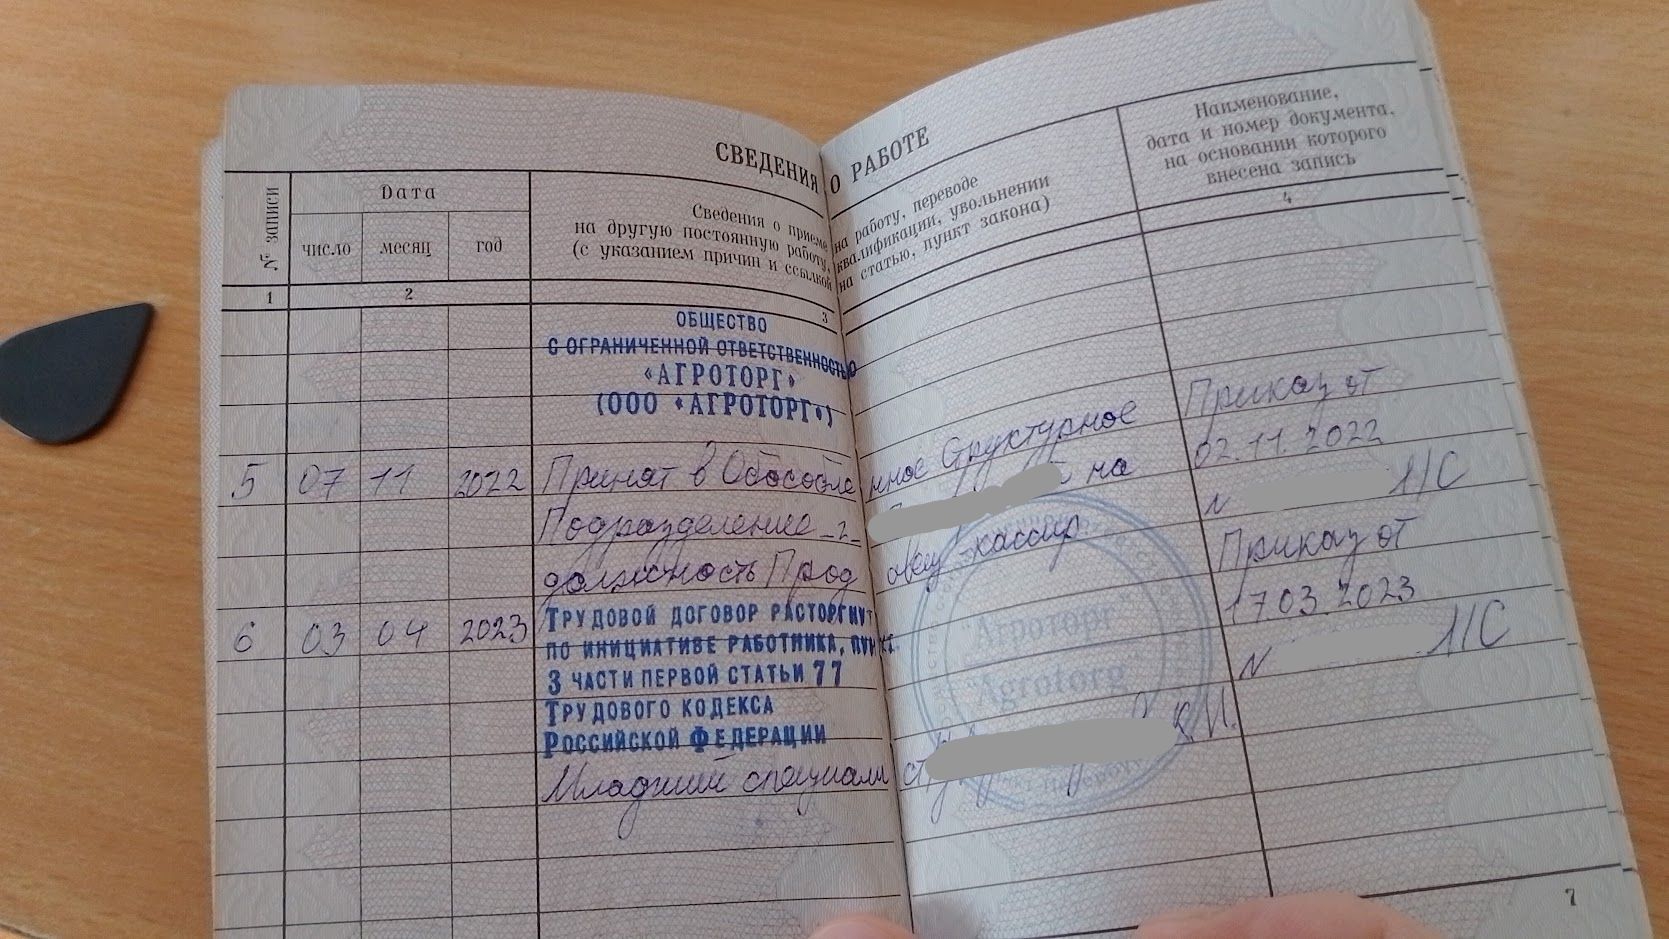 СВЕДЕНИЯ О РАБОТЕ
№ записи
Дата
число месяц год
Сведения о приеме на работу, переводе
на другую постоянную работу, квалификации, увольнении
(с указанием причин и ссылкой на статью, пункт закона)
Наименование,
дата и номер документа,
на основании которого
внесена запись
1 2 3 4
ОБЩЕСТВО
С ОГРАНИЧЕННОЙ ОТВЕТСТВЕННОСТЬЮ
«АГРОТОРГ»
(ООО «АГРОТОРГ»)
5 07 11 2022 Принят в Обособленное Структурное
Подразделение _2_ на
должность Продавец-кассир
Приказ от
02.11.2022
N 1/1С
6 03 04 2023 ТРУДОВОЙ ДОГОВОР РАСТОРГНУТ
ПО ИНИЦИАТИВЕ РАБОТНИКА, ПУНКТ
3 ЧАСТИ ПЕРВОЙ СТАТЬИ 77
ТРУДОВОГО КОДЕКСА
РОССИЙСКОЙ ФЕДЕРАЦИИ
Младший специалист К.И.
Приказ от
17.03.2023
N 1/1С
"Агроторг"
"Agrotorg"
7